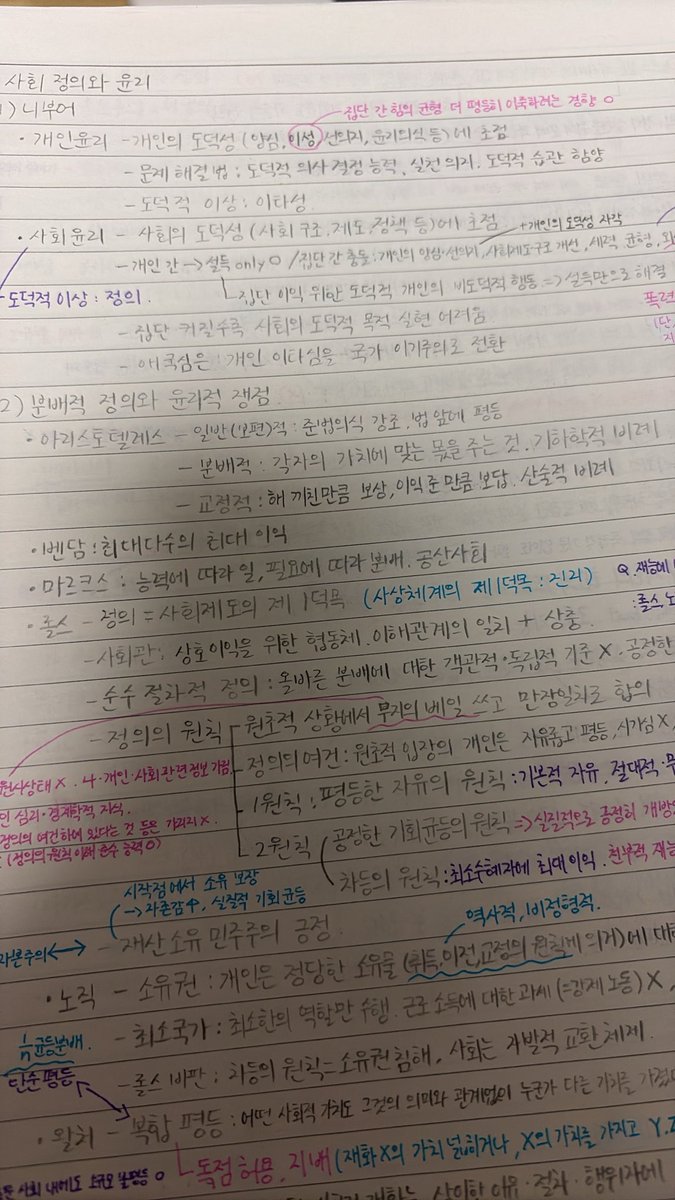 사회 정의와 윤리
1) 니부어
집단 간 힘의 균형 더 평등히 이룩하려는 경향 O
· 개인윤리 - 개인의 도덕성 (양심, 이성, 선의지, 윤리의식 등)에 초점
- 문제 해결법 : 도덕적 의사 결정 능력, 실천 의지, 도덕적 습관 함양
- 도덕적 이상 : 이타성
· 사회윤리 - 사회의 도덕성 (사회 구조, 제도, 정책 등)에 초점
+개인의 도덕성 자각
- 개인 간 → 설득 only O / 집단 간 충돌 : 개인의 양심·선의지, 사회제도·구조 개선, 세력 균형,
- 도덕적 이상 : 정의.
집단 이익 위한 도덕적 개인의 비도덕적 행동 => 설득만으로 해결
- 집단 커질수록 사회의 도덕적 목적 실현 어려움
- 애국심은 : 개인 이타심을 국가 이기주의로 전환
2) 분배적 정의와 윤리적 쟁점
· 아리스토텔레스 - 일반(보편)적 : 준법의식 강조, 법 앞에 평등
- 분배적 : 각자의 가치에 맞는 몫을 주는 것. 기하학적 비례
- 교정적 : 해 끼친만큼 보상, 이익 준 만큼 보답. 산술적 비례
· 벤담 : 최대다수의 최대 이익
· 마르크스 : 능력에 따라 일, 필요에 따라 분배. 공산사회
Q. 재능에
· 롤스 - 정의 = 사회제도의 제 1덕목 (사상체계의 제1덕목 : 진리)
: 롤스
- 사회관 : 상호이익을 위한 협동체. 이해관계의 일치 + 상충.
- 순수 절차적 정의 : 올바른 분배에 대한 객관적·독립적 기준 X. 공정한
- 정의의 원칙 원초적 상황에서 무지의 베일 쓰고 만장일치로 합의
정의의 여건 : 원초적 입장의 개인은 자유롭고 평등, 시기심 X,
원시상태 X. 개인·사회 관련 정보 가림
1원칙 : 평등한 자유의 원칙 : 기본적 자유, 절대적·
인 심리·경제학적 지식,
정의의 여건하에 있다는 것 등은 가려지 X.
2원칙 공정한 기회균등의 원칙 => 실질적으로 공정히 개방
(정의의 원칙 이해 능력 O)
차등의 원칙 : 최소수혜자에 최대 이익. 천부적 재능
시작점에서 소유 보장
→ 자존감 ↑, 실질적 기회균등
자본주의 ↔ - 재산 소유 민주주의 긍정.
역사적, 비정형적.
· 노직 - 소유권 : 개인은 정당한 소유물 (취득, 이전, 교정의 원칙에 의거)에 대
- 최소국가 : 최소한의 역할만 수행. 근로 소득에 대한 과세 (=강제 노동) X,
1/n 균등분배.
- 롤스 비판 : 차등의 원칙 = 소유권 침해, 사회는 자발적 교환 체제.
단순평등
· 왈처 - 복합 평등 : 어떤 사회적 가치도 그것의 의미와 관계없이 누군가 다른 가치를 가졌
사회 내에도 소규모 불평등 O
독점 허용, 지배 (재화 X의 가치 넓히거나, X의 가치를 가지고 Y, Z
상이한 이유·절차·행위자에